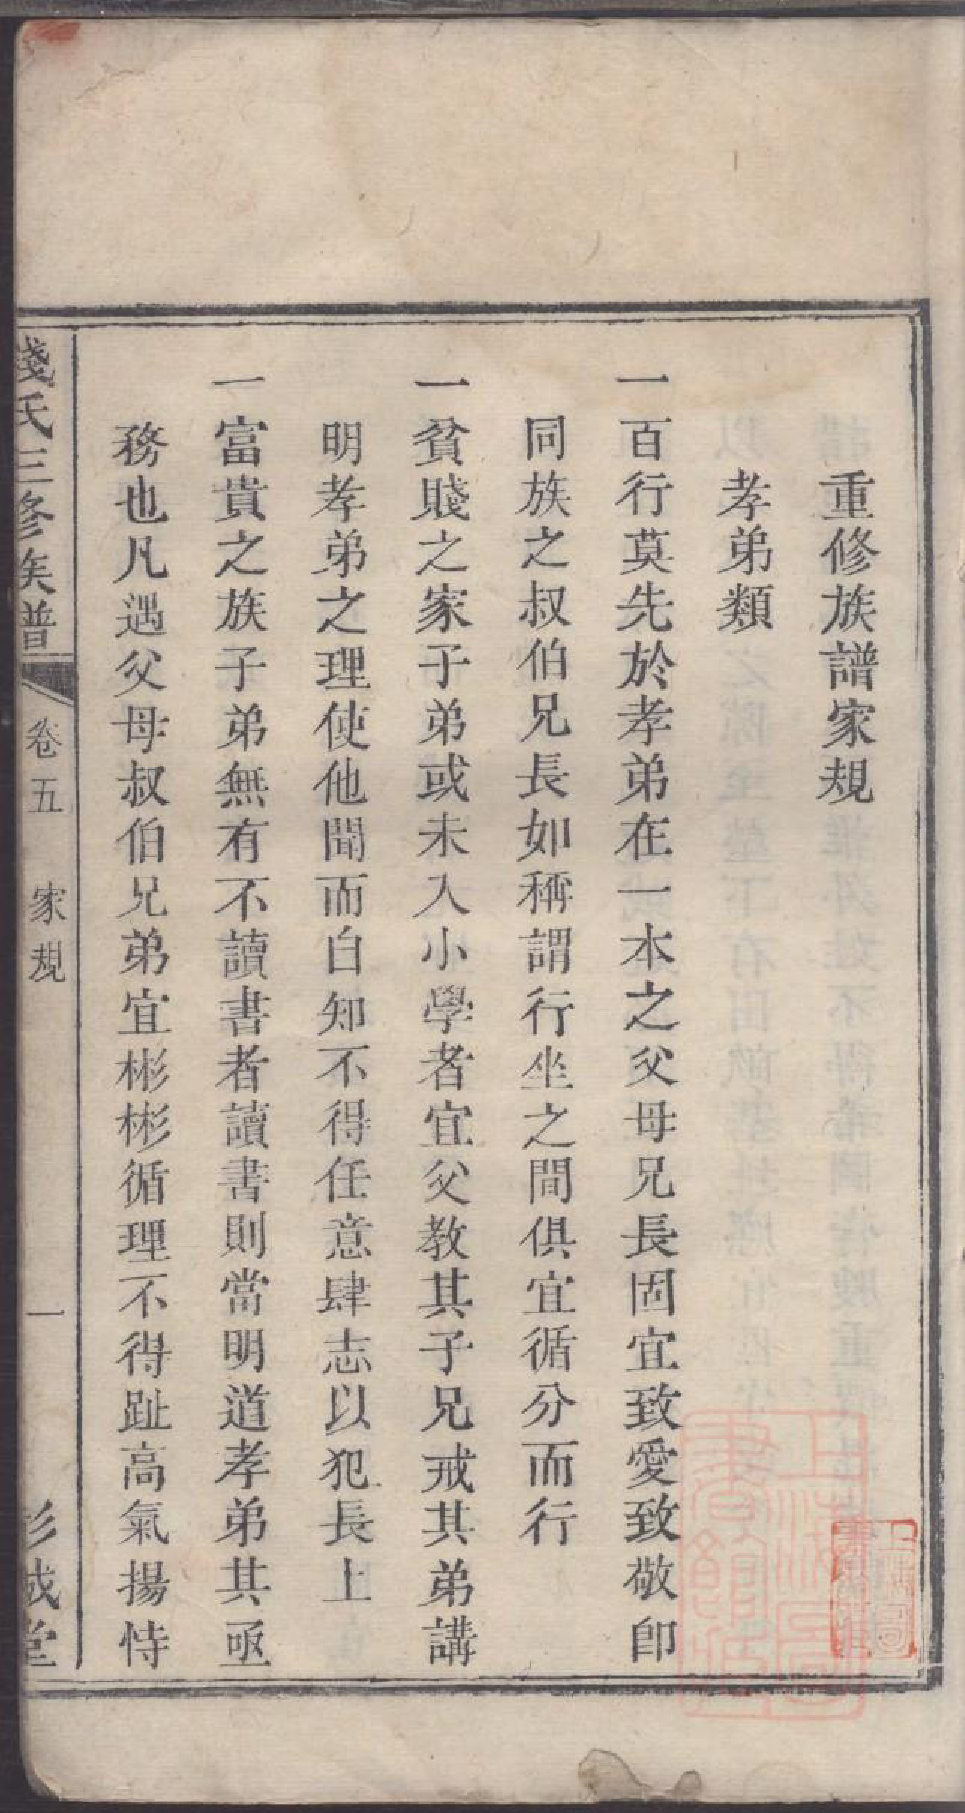 重修族譜家規
孝弟類
一百行莫先於孝弟在一本之父母兄長固宜致愛致敬卽
同族之叔伯兄長如稱謂行坐之間俱宜循分而行
一貧賤之家子弟或未入小學者宜父教其子兄戒其弟講
明孝弟之理使他聞而自知不得任意肆志以犯長上
一富貴之族子弟無有不讀書者讀書則當明道孝弟其亟
務也凡遇父母叔伯兄弟宜彬彬循理不得趾高氣揚恃
錢氏三修族譜 卷五 家規 一 彭城堂